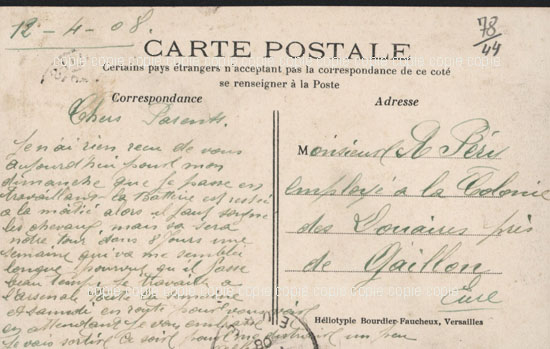 12-4-08.
78
44
CARTE POSTALE
Certains pays étrangers n'acceptent pas la correspondance de ce coté
se renseigner à la Poste
Correspondance
Adresse
Chers Parents.
Je n'ai rien recu de vous
aujourd'hui pour mon
dimanche que je passe en
travaillant la Batterie est resté
a la alors il faut
les chevaux mais va sera
notre tour dans 8 jours une
semaine qui va me sembler
longue pourvu qu'il fasse
beau temps
l'arsenal toute la semaine
en route pour vous voir
en attendant je vous embrasse
Je vais sortir ce soir pour un peu
Monsieur A Péry
employé a la Colonie
des Douaires près
de Gaillon
Eure
Héliotypie Bourdier-Faucheux, Versailles
copie copie copie copie copie copie copie